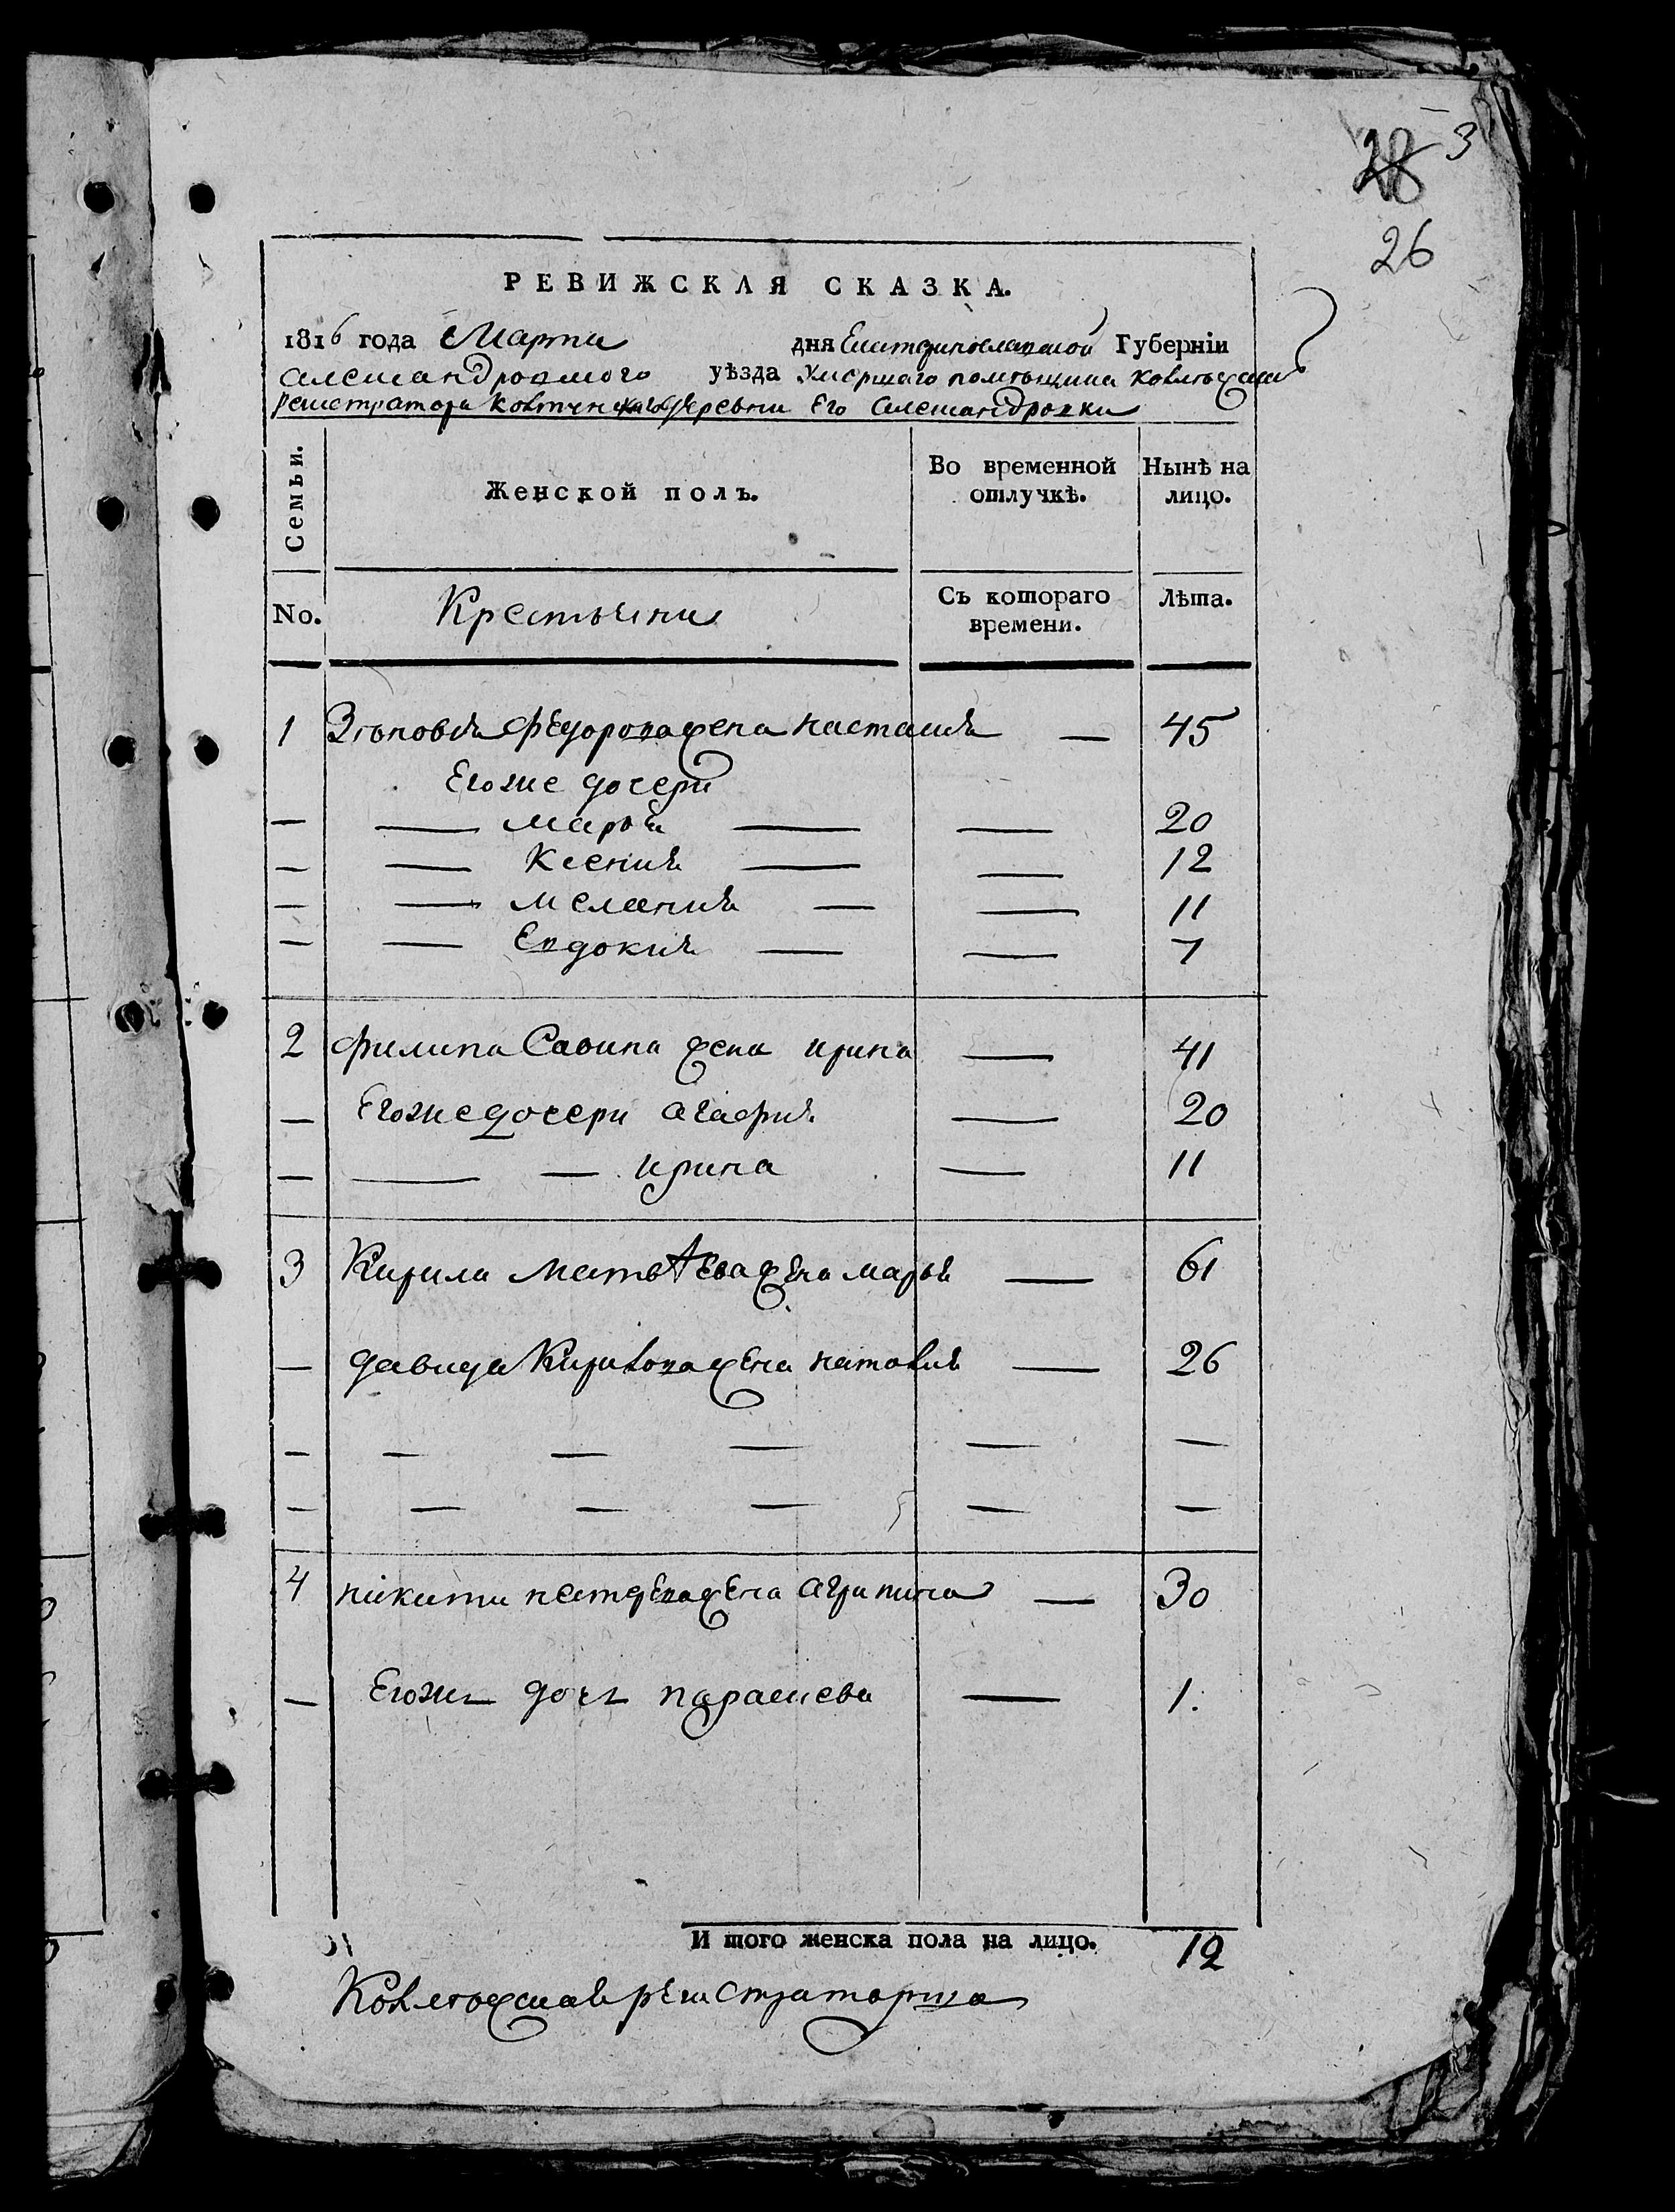 28 3
26
РЕВИЖСКАЯ СКАЗКА.
1816 года Марта дня Екатеринославской Губерніи
Александровского уѣзда умершаго помѣщика колѣжскаго
регистратора деревни Его Александровки
Семьи. Женской полъ. Во временной отлучкѣ. Нынѣ на лицо.
No. Крестьяни Съ котораго времени. Лѣта.
1 Зѣновья Федорова жена настасия — 45
Егоже дочери
— — Марья — — 20
— — Ксения — — 12
— — Мелания — — 11
— — Евдокия — — 7
2 Филипа Савина жена ирина — 41
— Егоже дочери агафия — 20
— — — ирина — 11
3 Кирила Матвѣева жена марья — 61
— давида Кирилова жена наталия — 26
— — — — — —
— — — — — —
4 никити жена агрипина — 30
— Егожъ дочъ параскева — 1.
И того женска пола на лицо. 12
Колѣжская регистраторша